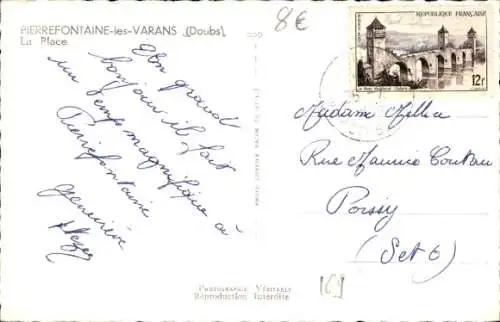 PIERREFONTAINE-les-VARANS (Doubs)
La Place
8€
REPUBLIQUE FRANÇAISE
12f
Un grand
bonjour il fait
un temps magnifique à
Pierrefontaine
Geneviève
Madame
Rue Maurice
Poissy
(Set O)
PHOTOGRAPHIE VÉRITABLE
Reproduction Interdite